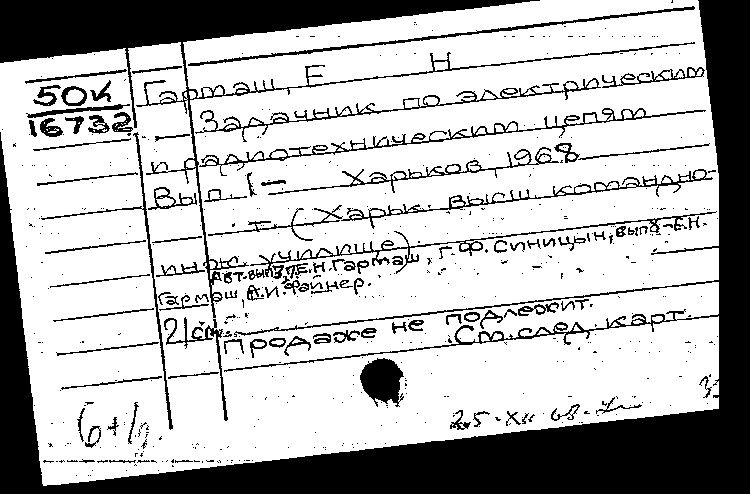 50К
16732
Гармаш, Е Н
Задачник по электрическим
и радиотехническим цепям
Вып. 1- Харьков, 1968
т. (Харьк. высш. командно-
инж. училище)
Авт. вып. Е.Н. Гармаш, Г.Ф. Синицын, вып. - Е.Н.
Гармаш, А.И. Файнер.
21 см
Продаже не подлежит.
См. след. карт.
25-XII 68.